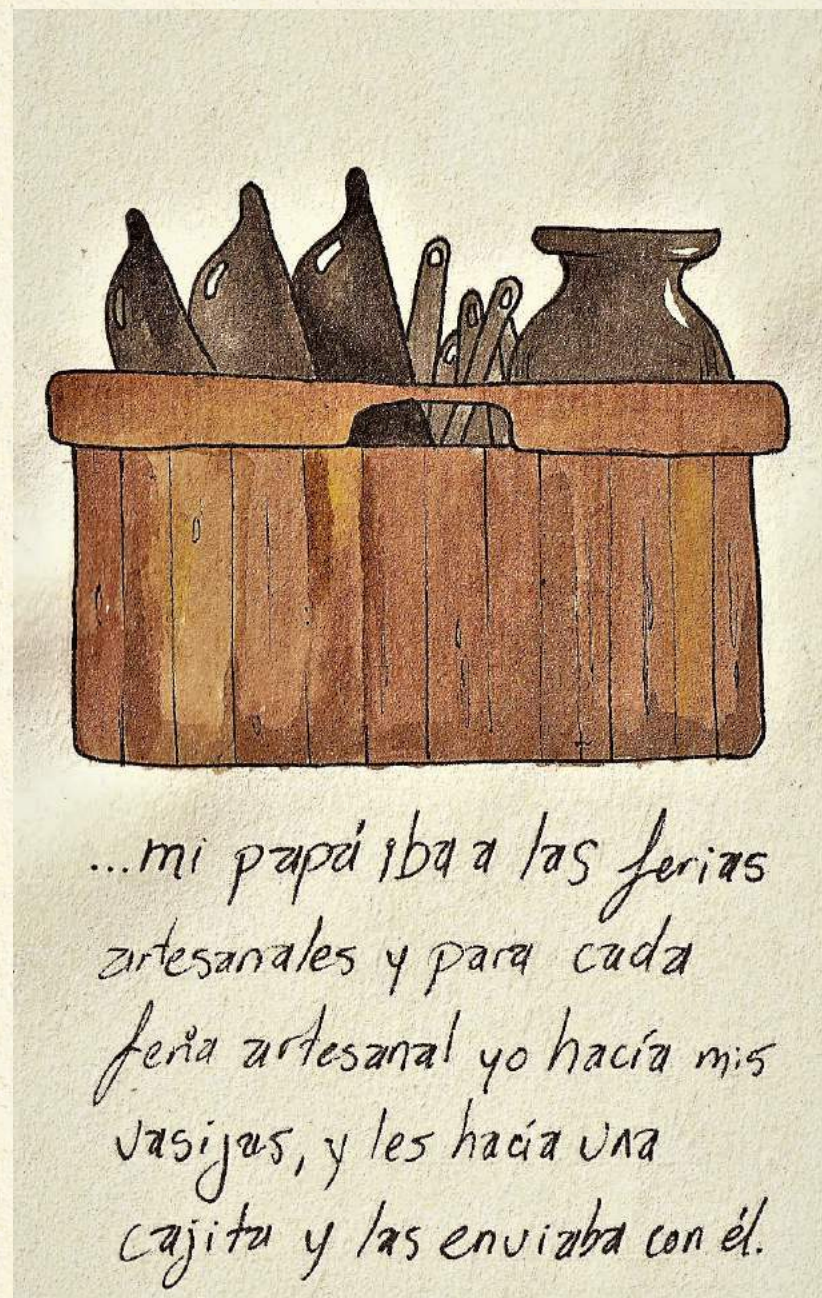 ...mi papá iba a las ferias
artesanales y para cada
feria artesanal yo hacía mis
vasijas, y les hacía una
cajita y las enviaba con él.